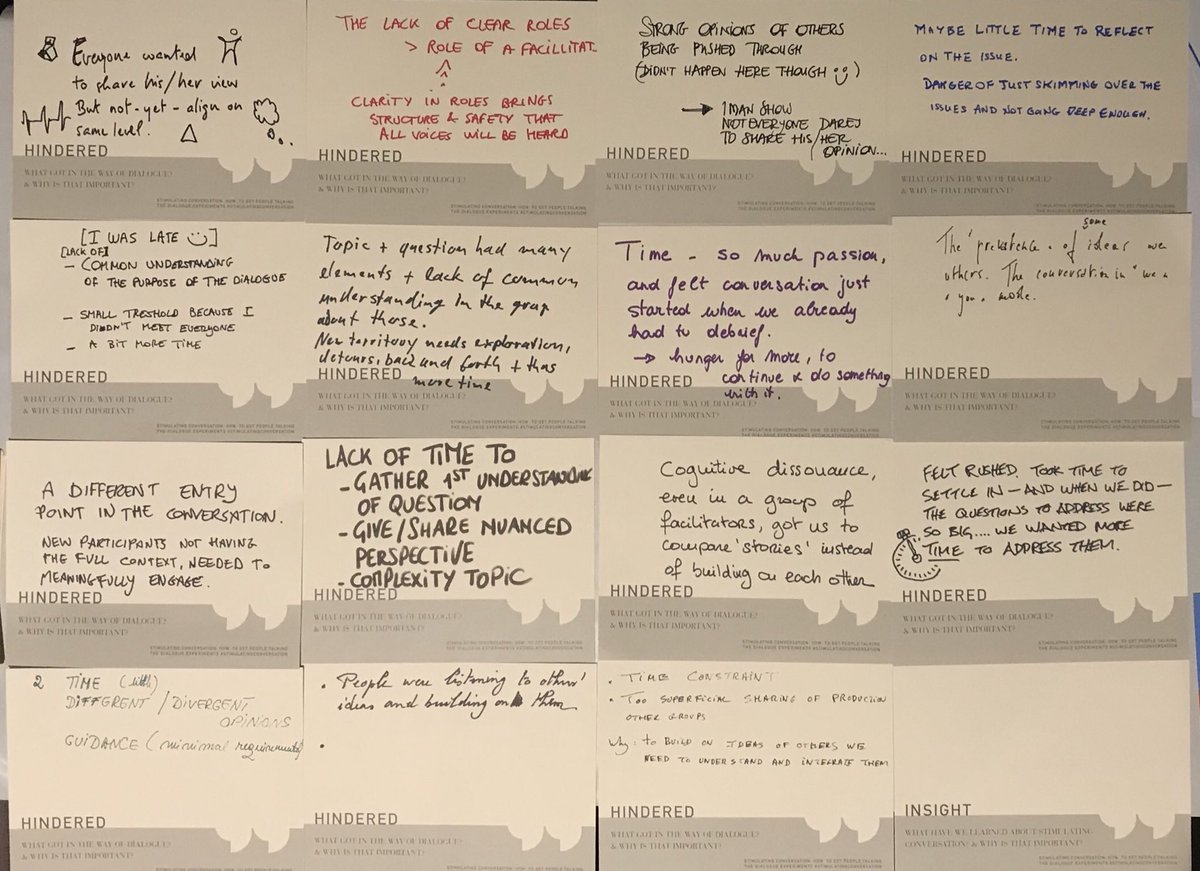 Everyone wanted
to share his/her view
But not-yet-align on
same level.
HINDERED
WHAT GOT IN THE WAY OF DIALOGUE?
& WHY IS THAT IMPORTANT?
STIMULATING CONVERSATION: HOW TO GET PEOPLE TALKING
THE DIALOGUE EXPERIMENTS #STIMULATINGCONVERSATION
THE LACK OF CLEAR ROLES
> ROLE OF A FACILLITAT.
CLARITY IN ROLES BRINGS
STRUCTURE & SAFETY THAT
ALL VOICES WILL BE HEARD
HINDERED
WHAT GOT IN THE WAY OF DIALOGUE?
& WHY IS THAT IMPORTANT?
STIMULATING CONVERSATION: HOW TO GET PEOPLE TALKING
THE DIALOGUE EXPERIMENTS #STIMULATINGCONVERSATION
STRONG OPINIONS OF OTHERS
BEING PUSHED THROUGH
(DIDN'T HAPPEN HERE THOUGH)
→ 1 MAN SHOW
NOT EVERYONE DARES
TO SHARE HIS/HER
OPINION...
HINDERED
WHAT GOT IN THE WAY OF DIALOGUE?
& WHY IS THAT IMPORTANT?
STIMULATING CONVERSATION: HOW TO GET PEOPLE TALKING
THE DIALOGUE EXPERIMENTS #STIMULATINGCONVERSATION
MAYBE LITTLE TIME TO REFLECT
ON THE ISSUE.
DANGER OF JUST SKIMMING OVER THE
ISSUES AND NOT GOING DEEP ENOUGH.
HINDERED
WHAT GOT IN THE WAY OF DIALOGUE?
& WHY IS THAT IMPORTANT?
STIMULATING CONVERSATION: HOW TO GET PEOPLE TALKING
THE DIALOGUE EXPERIMENTS #STIMULATINGCONVERSATION
[I WAS LATE]
[LACK OF]
- COMMON UNDERSTANDING
OF THE PURPOSE OF THE DIALOGUE
- SMALL TRESHOLD BECAUSE I
DIDN'T MEET EVERYONE
- A BIT MORE TIME
HINDERED
WHAT GOT IN THE WAY OF DIALOGUE?
& WHY IS THAT IMPORTANT?
STIMULATING CONVERSATION: HOW TO GET PEOPLE TALKING
THE DIALOGUE EXPERIMENTS #STIMULATINGCONVERSATION
Topic + question had many
elements + lack of common
understanding in the group
about those.
New territory needs exploration,
detours, back and forth + thus
more time
HINDERED
WHAT GOT IN THE WAY OF DIALOGUE?
& WHY IS THAT IMPORTANT?
STIMULATING CONVERSATION: HOW TO GET PEOPLE TALKING
THE DIALOGUE EXPERIMENTS #STIMULATINGCONVERSATION
Time - so much passion,
and felt conversation just
started when we already
had to debrief.
→ hunger for more, to
continue & do something
with it.
HINDERED
WHAT GOT IN THE WAY OF DIALOGUE?
& WHY IS THAT IMPORTANT?
STIMULATING CONVERSATION: HOW TO GET PEOPLE TALKING
THE DIALOGUE EXPERIMENTS #STIMULATINGCONVERSATION
some
The of ideas we
others. The conversation in
you. mode.
HINDERED
WHAT GOT IN THE WAY OF DIALOGUE?
& WHY IS THAT IMPORTANT?
STIMULATING CONVERSATION: HOW TO GET PEOPLE TALKING
THE DIALOGUE EXPERIMENTS #STIMULATINGCONVERSATION
A DIFFERENT ENTRY
POINT IN THE CONVERSATION.
NEW PARTICIPANTS NOT HAVING
THE FULL CONTEXT, NEEDED TO
MEANINGFULLY ENGAGE.
HINDERED
WHAT GOT IN THE WAY OF DIALOGUE?
& WHY IS THAT IMPORTANT?
STIMULATING CONVERSATION: HOW TO GET PEOPLE TALKING
THE DIALOGUE EXPERIMENTS #STIMULATINGCONVERSATION
LACK OF TIME TO
- GATHER 1ST UNDERSTANDING
OF QUESTION
- GIVE/SHARE NUANCED
PERSPECTIVE
- COMPLEXITY TOPIC
HINDERED
WHAT GOT IN THE WAY OF DIALOGUE?
& WHY IS THAT IMPORTANT?
STIMULATING CONVERSATION: HOW TO GET PEOPLE TALKING
THE DIALOGUE EXPERIMENTS #STIMULATINGCONVERSATION
Cognitive dissonance,
even in a group of
facilitators, got us to
compare 'stories' instead
of building on each other
HINDERED
WHAT GOT IN THE WAY OF DIALOGUE?
& WHY IS THAT IMPORTANT?
STIMULATING CONVERSATION: HOW TO GET PEOPLE TALKING
THE DIALOGUE EXPERIMENTS #STIMULATINGCONVERSATION
FELT RUSHED. TOOK TIME TO
SETTLE IN - AND WHEN WE DID -
THE QUESTIONS TO ADDRESS WERE
SO BIG.... WE WANTED MORE
TIME TO ADDRESS THEM.
HINDERED
WHAT GOT IN THE WAY OF DIALOGUE?
& WHY IS THAT IMPORTANT?
STIMULATING CONVERSATION: HOW TO GET PEOPLE TALKING
THE DIALOGUE EXPERIMENTS #STIMULATINGCONVERSATION
2 TIME (little)
DIFFERENT / DIVERGENT
OPINIONS
GUIDANCE (minimal requirements)
HINDERED
WHAT GOT IN THE WAY OF DIALOGUE?
& WHY IS THAT IMPORTANT?
• People were listening to others'
ideas and building on them
•
HINDERED
WHAT GOT IN THE WAY OF DIALOGUE?
& WHY IS THAT IMPORTANT?
• TIME CONSTRAINT
• TOO SUPERFICIAL SHARING OF PRODUCTION
OTHER GROUPS
Why: to BUILD ON IDEAS OF OTHERS WE
NEED TO UNDERSTAND AND INTEGRATE THEM
HINDERED
WHAT GOT IN THE WAY OF DIALOGUE?
& WHY IS THAT IMPORTANT?
INSIGHT
WHAT HAVE WE LEARNED ABOUT STIMULATING
CONVERSATION? & WHY IS THAT IMPORTANT?
STIMULATING CONVERSATION: HOW TO GET PEOPLE TALKING
THE DIALOGUE EXPERIMENTS #STIMULATINGCONVERSATION